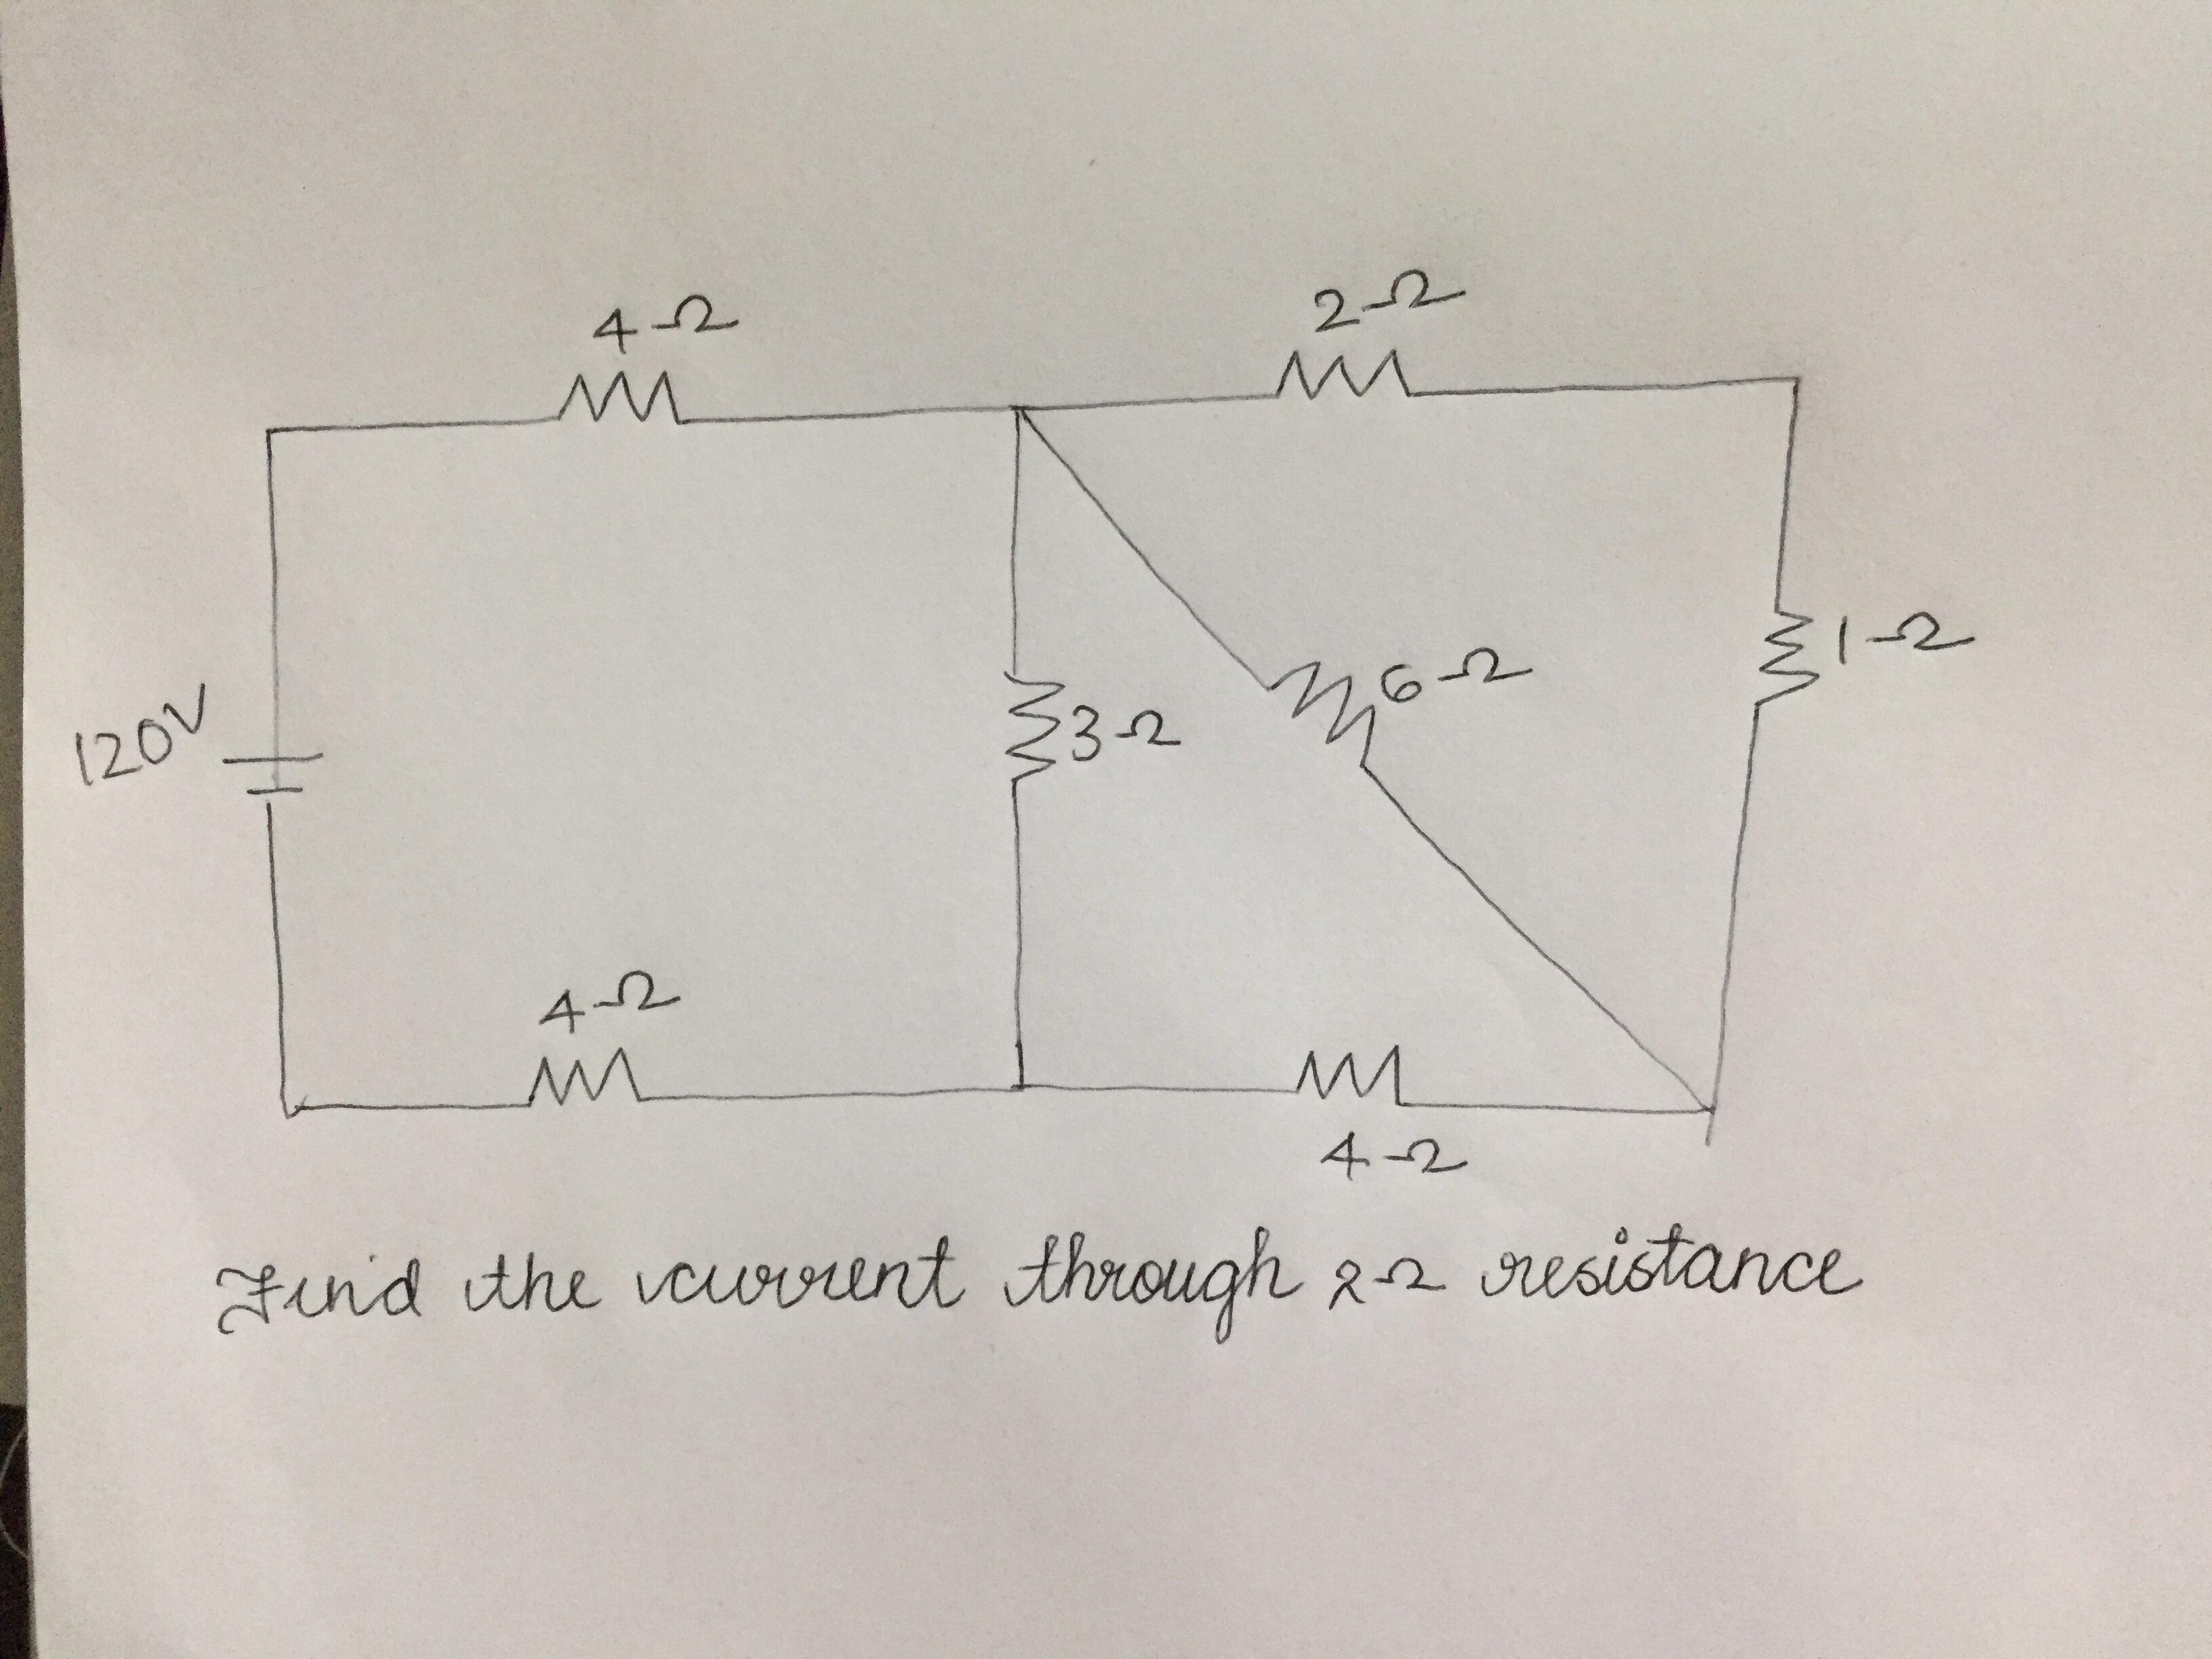 4Ω
2Ω
120V
3Ω
6Ω
1Ω
4Ω
4Ω
Find the current through 2Ω resistance